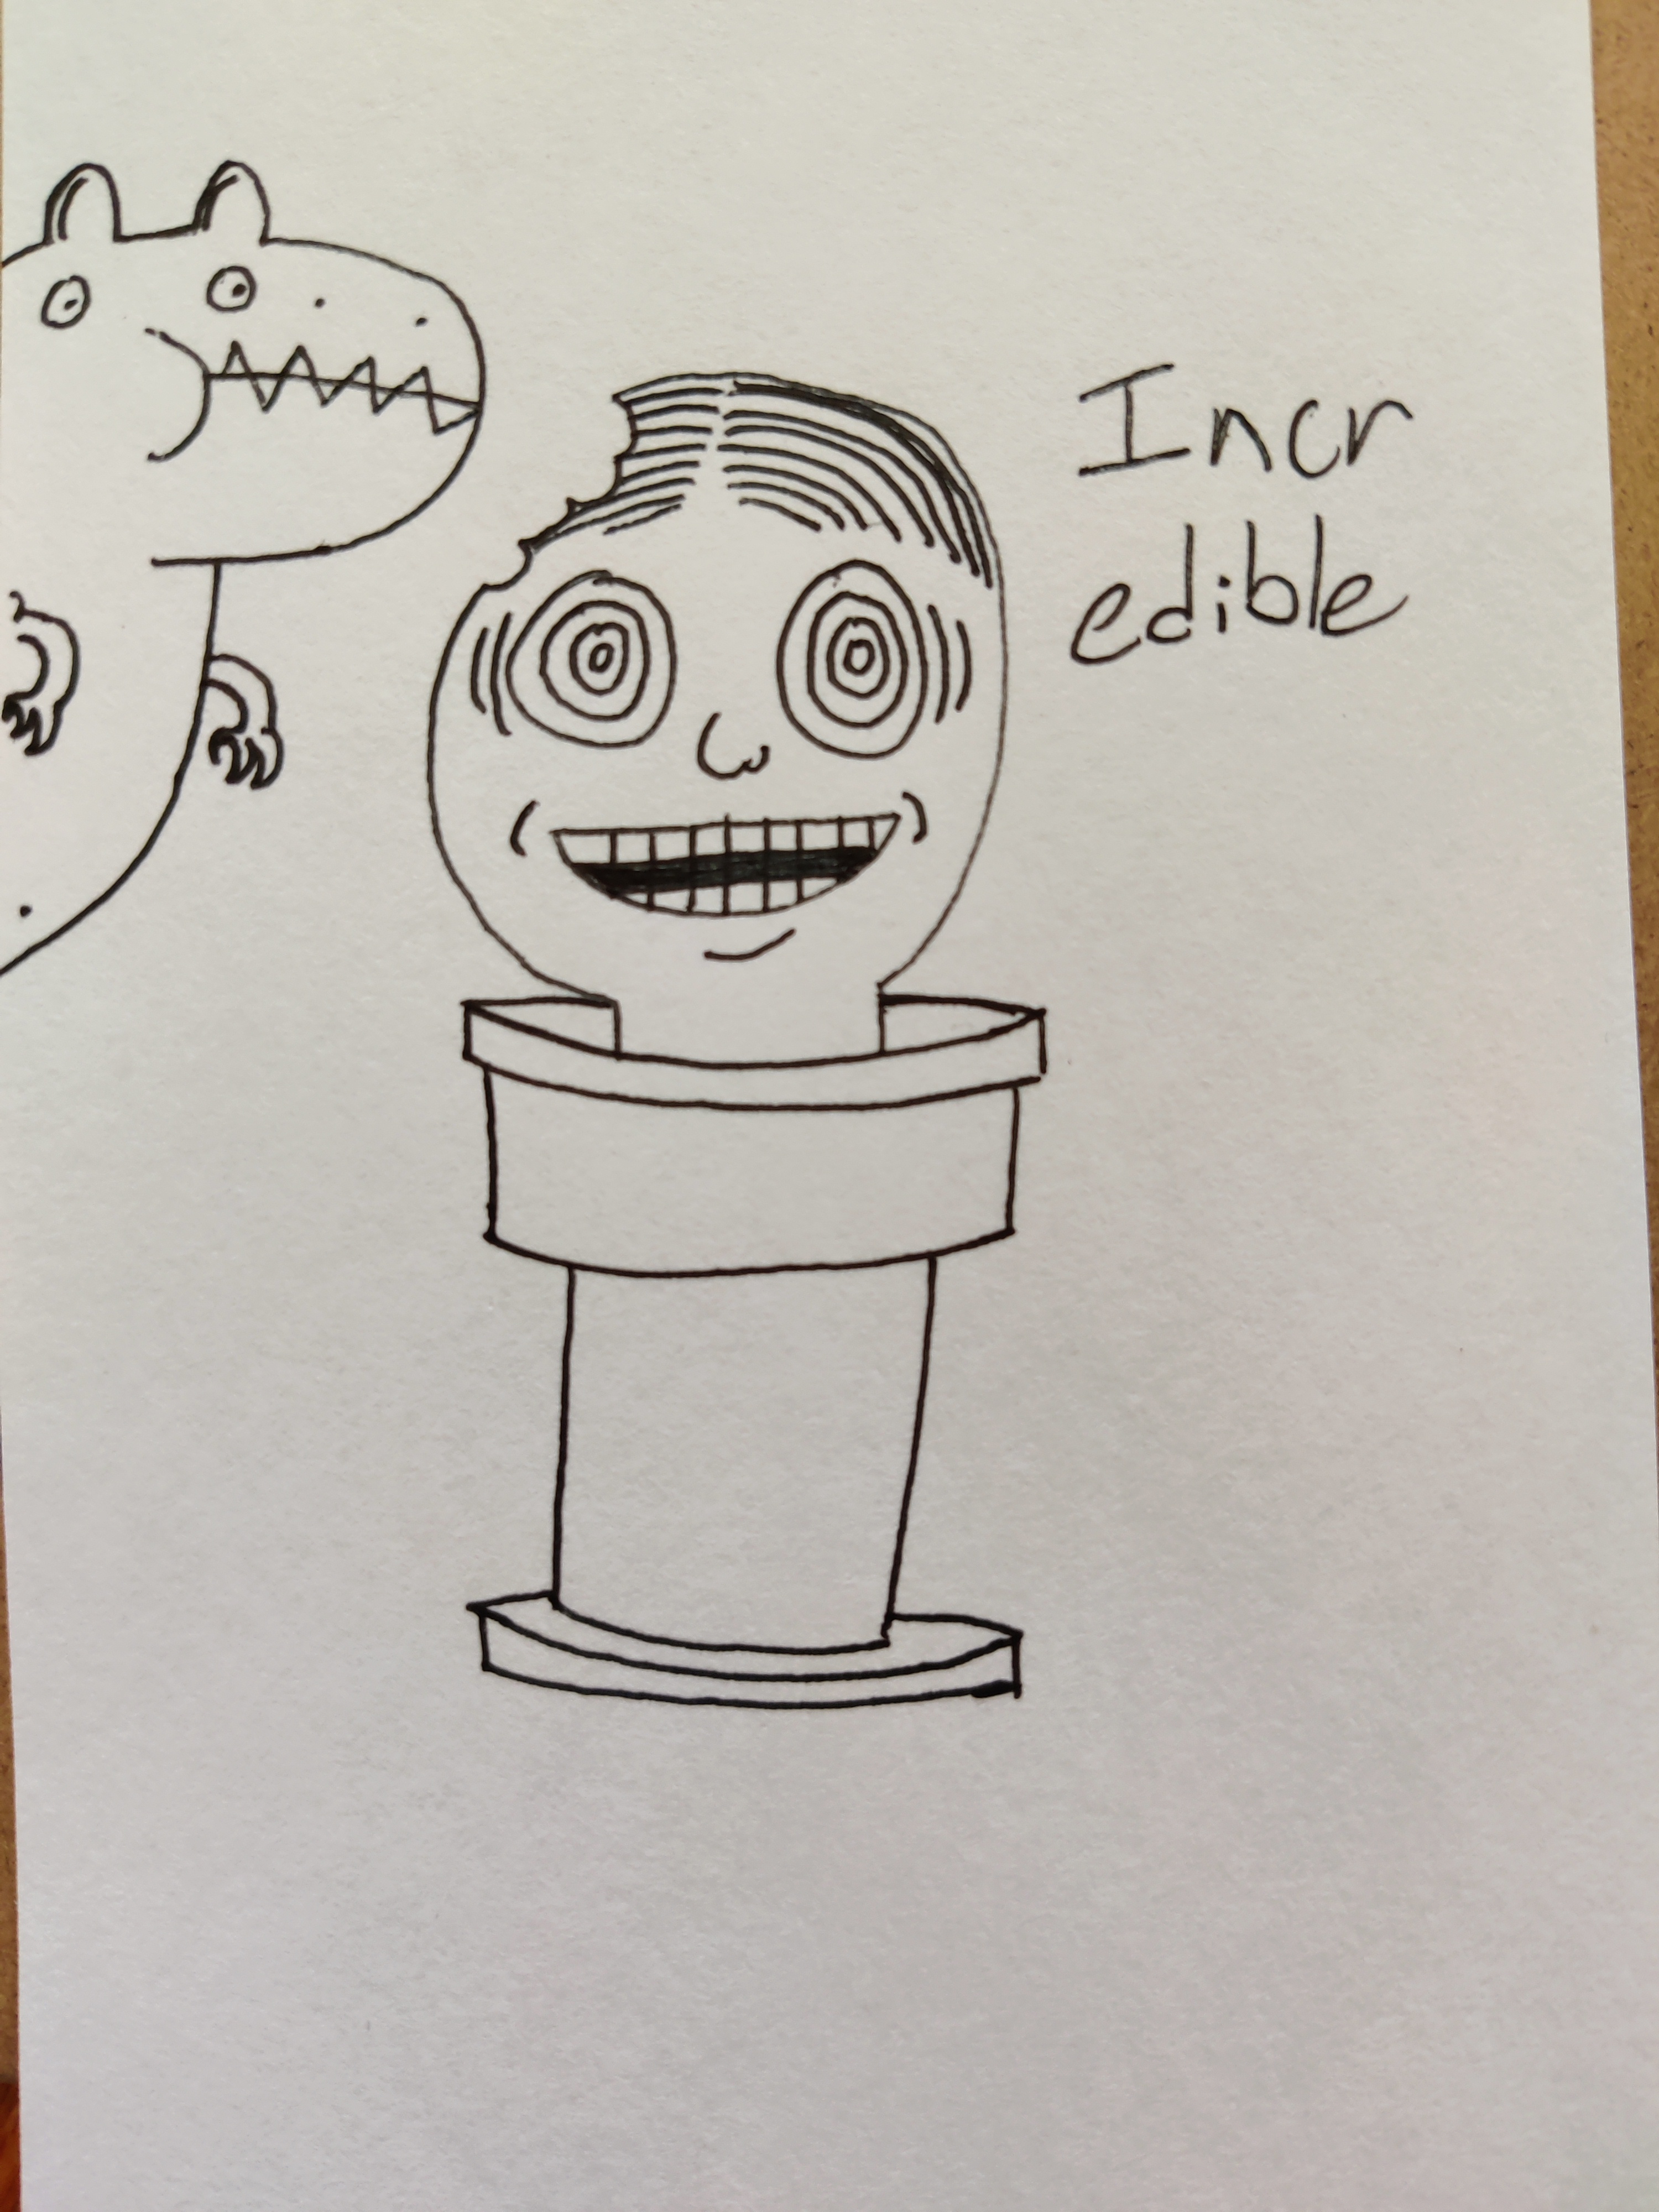 Incr
edible